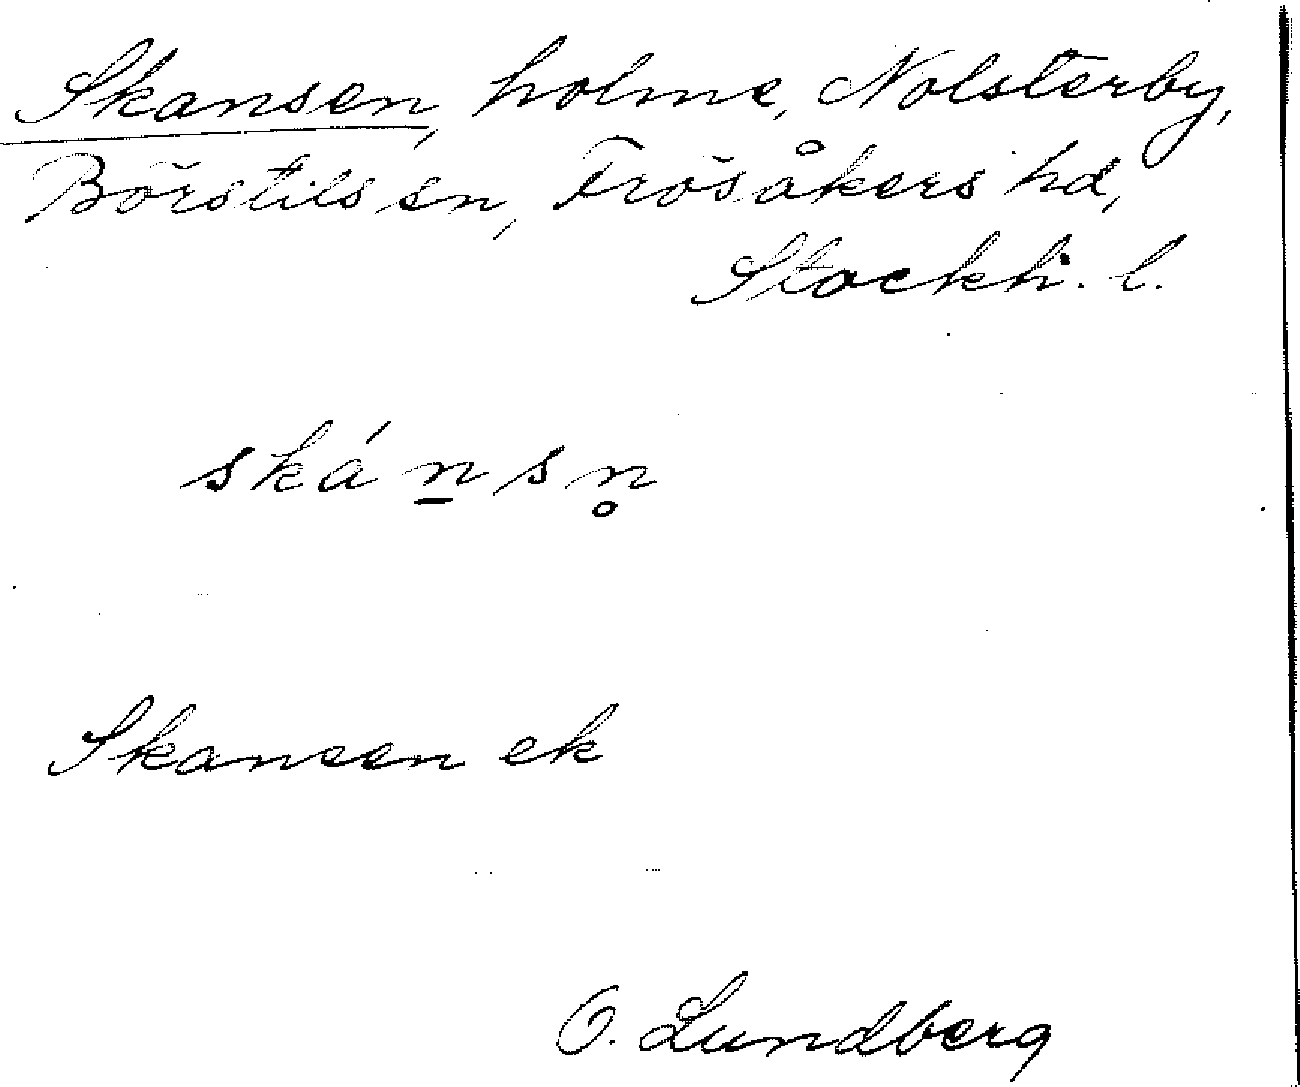 Skansen, holme, Nolsterby,
Börstils sn, Frösåkers hd,
Stockh. l.
skáṉsn̥
Skansen ek
O. Lundberg